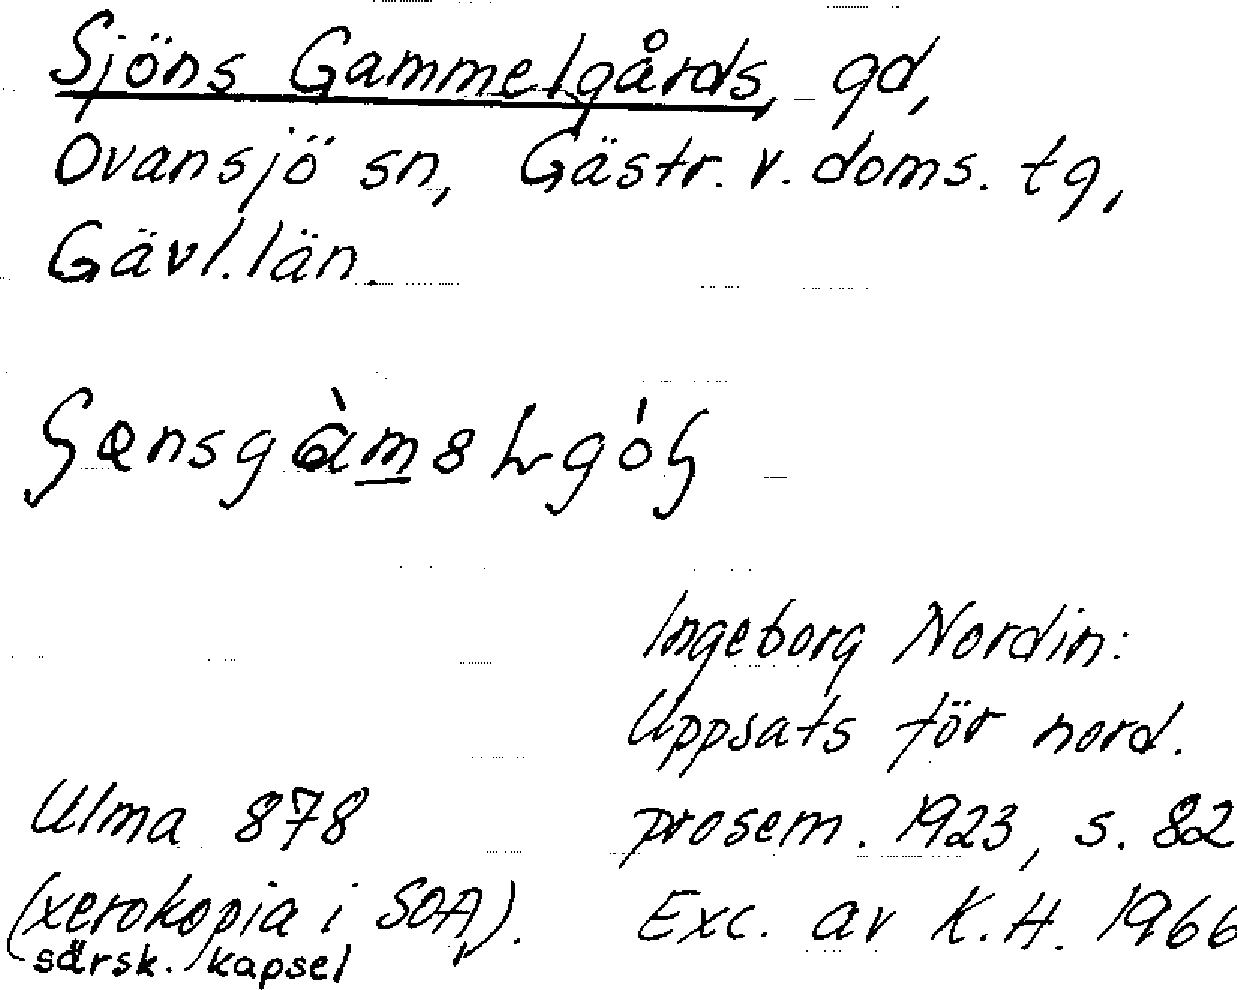 Sjöns Gammelgårds, gd,
Ovansjö sn, Gästr. v. doms. tg,
Gävl. län.
Ingeborg Nordin:
Uppsats för nord.
Ulma 878 prosem. 1923, s. 82
(xerokopia i SOA, Exc. av K.H. 1966
särsk. kapsel).